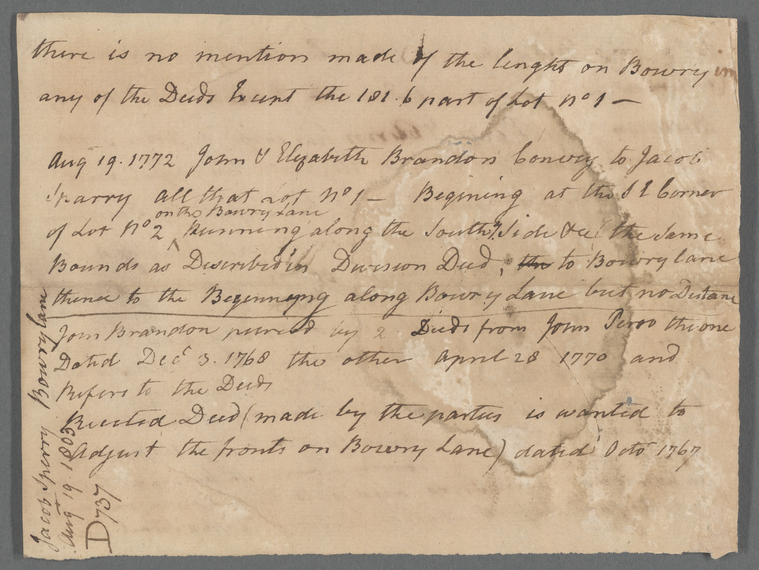 there is no mention made of the lenght on Bowry in
any of the Deeds Except the 181.6 part of Lot No 1 —
Aug 19. 1772 John & Elizabeth Brandon Convey to Jacob
Sparry all that Lot No 1 — Begining at the S E Corner
on the Bowry Lane
of Lot No 2 ^ Running along the South Side &c the same
Bounds as Described in Division Deed, to Bowry lane
thence to the Beginning along Bowry Lane but no Distane
John Brandon by 2 Deeds from John the one
Dated Decr 3. 1768 the other April 28 1770 and
Refers to the Deeds
Recited Deed (made by the parties is wanted to
Adjust the fronts on Bowry Lane) dated Octo 1767
Jacob Sperry Bowry lane
Aug 19 1803
D737